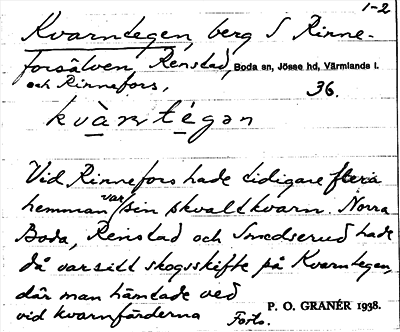 1-2
Kvarntegen, berg S Rinne-
forsälven, Renstad, Boda sn, Jösse hd, Värmlands l.
och Rinnefors. 36.
kvàrntégan
Vid Rinnefors hade tidigare flera
hemman var sin skvaltkvarn. Norra
Boda, Renstad och Smedserud hade
då varsitt skogsskifte på Kvarntegen,
där man hämtade ved
vid kvarnfärderna Forts. P. O. GRANÉR 1938.